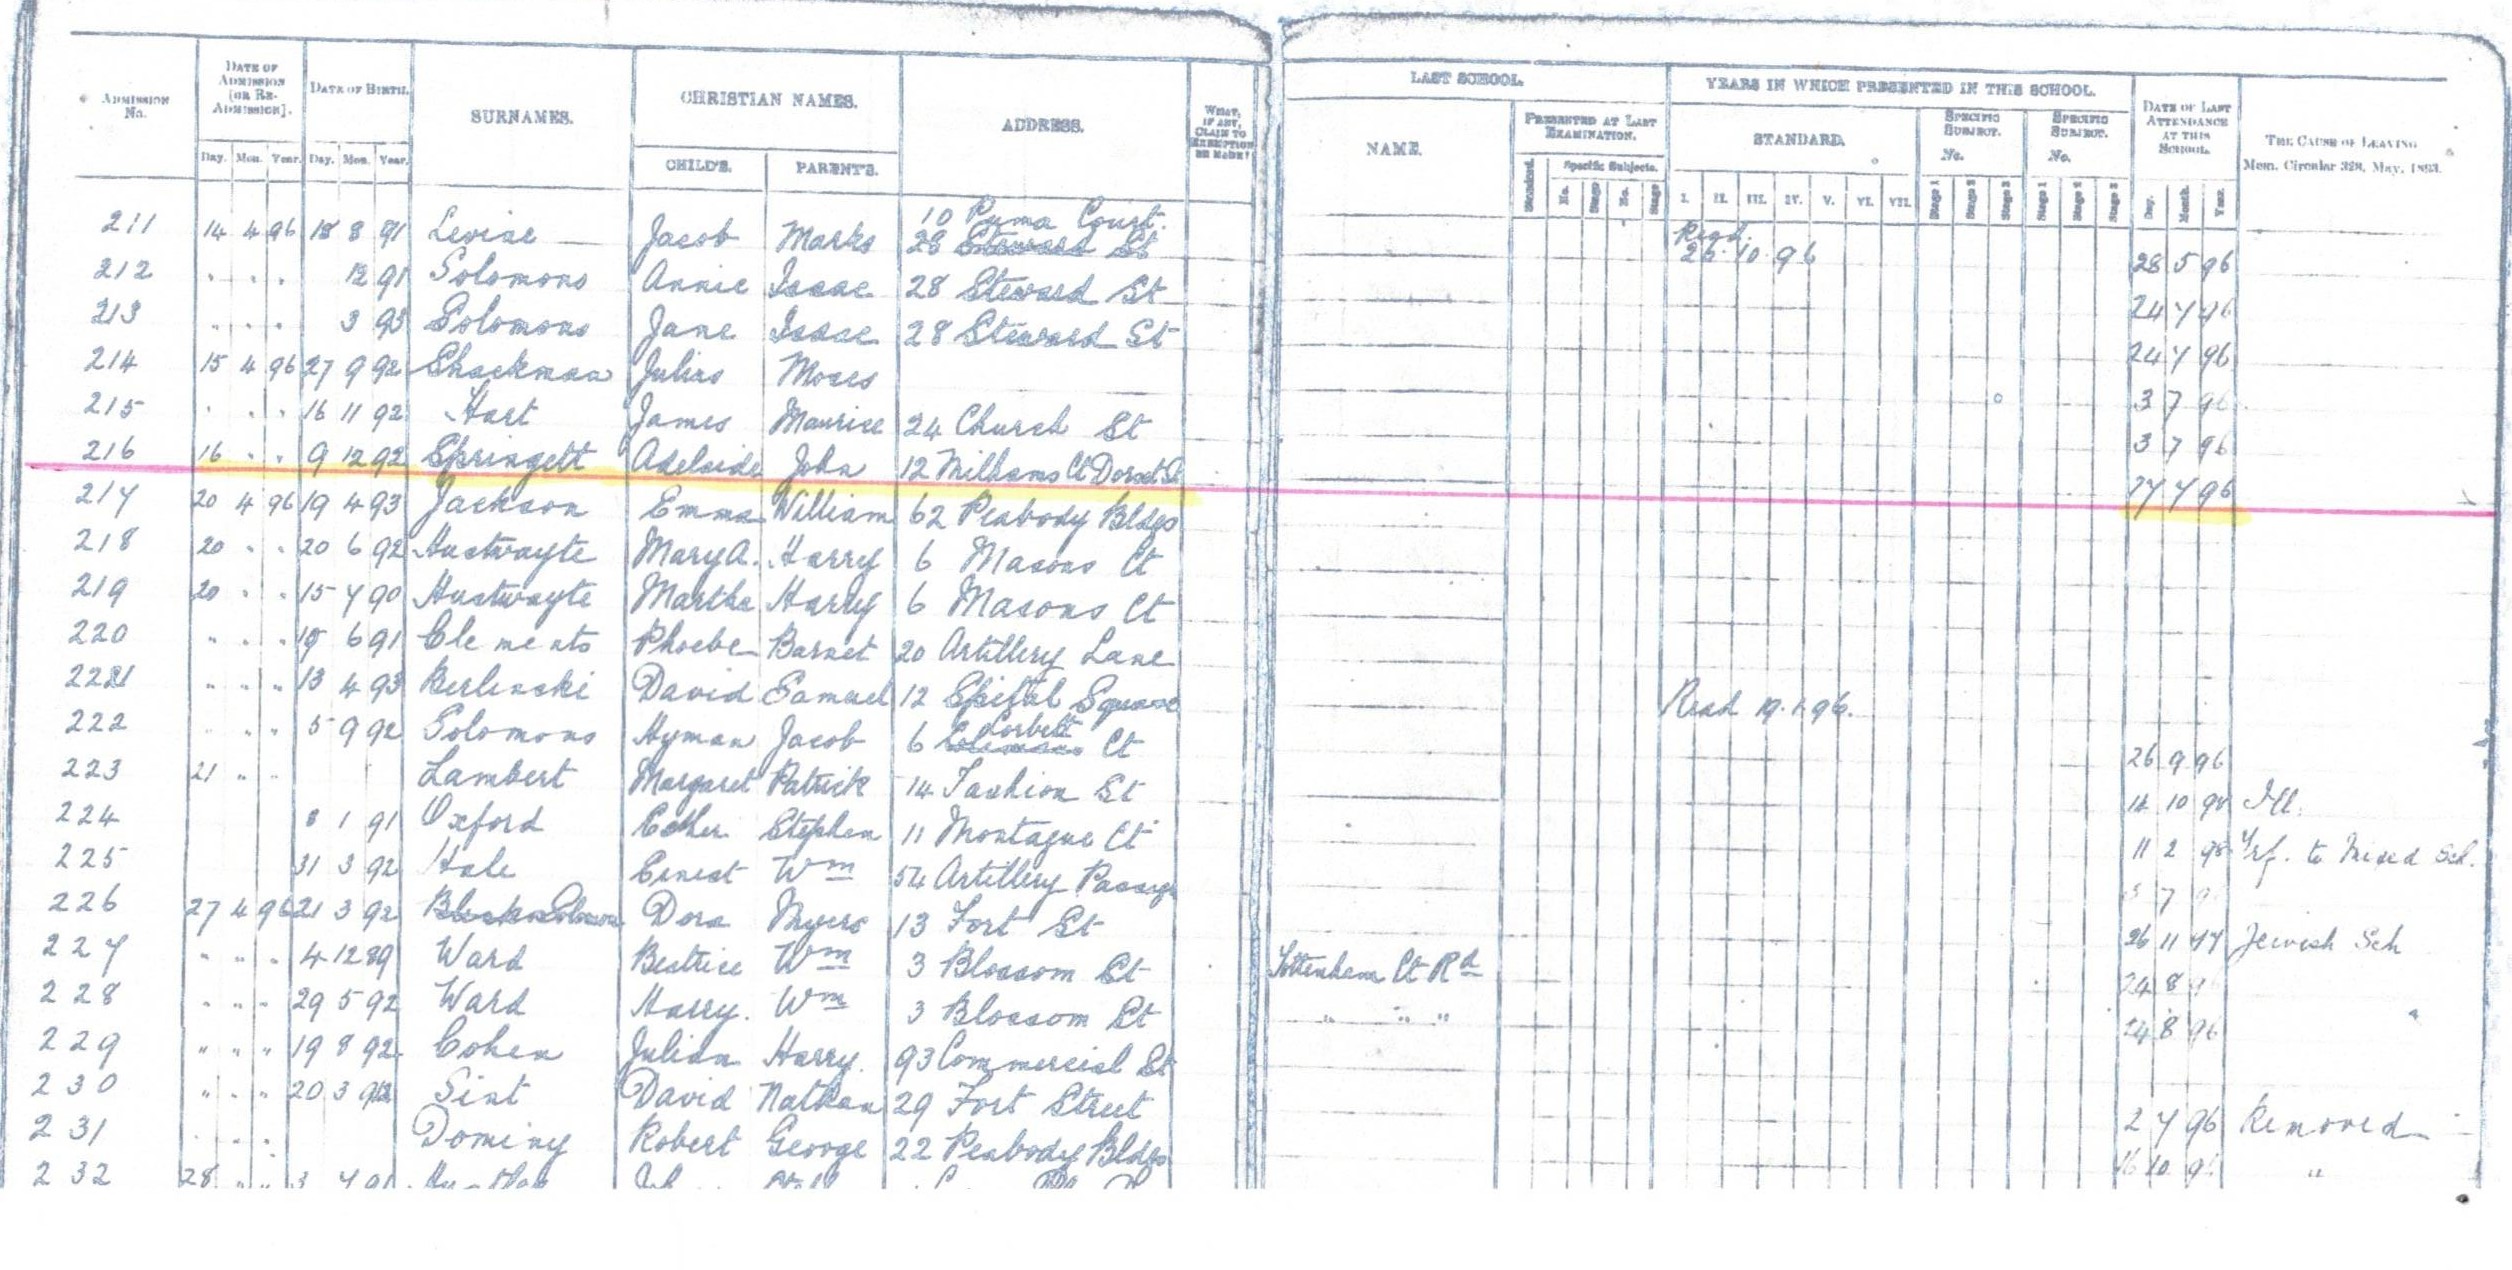 ADMISSION No. DATE OF ADMISSION [OR RE-ADMISSION]. DATE OF BIRTH. SURNAMES. CHRISTIAN NAMES. ADDRESS. WHAT, IF ANY, CLAIM TO EXEMPTION BE MADE? LAST SCHOOL. YEARS IN WHICH PRESENTED IN THIS SCHOOL. DATE OF LAST ATTENDANCE AT THIS SCHOOL. THE CAUSE OF LEAVING Mem. Circular 328, May, 1893.
NAME. PRESENTED AT LAST EXAMINATION. STANDARD. SPECIFIC SUBJECT. No. SPECIFIC SUBJECT. No.
Day. Mon. Year. Day. Mon. Year. CHILD'S. PARENT'S. Standard. Specific Subjects. No. Stage No. Stage I. II. III. IV. V. VI. VII. Stage 1 Stage 2 Stage 3 Stage 1 Stage 2 Stage 3 Day. Month. Year.
10 Pyma Court.
211 14 4 96 18 8 91 Levine Jacob Marks 28 Steward St Read. 26.10.96 28 5 96
212 " " " 12 91 Solomons Annie Isaac 28 Steward St 24 7 96
213 " " " 3 93 Solomons Jane Isaac 28 Steward St 24 7 96
214 15 4 96 27 9 92 Shackman Julius Moses 3 7 96
215 " " " 16 11 92 Hart James Maurice 24 Church St 3 7 96
216 16 " " 9 12 92 Springett Adelaide John 12 Ct Dorset St 7 96
217 20 4 96 19 4 93 Jackson Emma William 62 Peabody Bldgs
218 20 " " 20 6 92 Hustwayte Mary A. Harry 6 Masons Ct
219 20 " " 15 7 90 Hustwayte Martha Harry 6 Masons Ct
220 " " " 6 91 Clements Phoebe Barnet 20 Artillery Lane
221 " " " 13 4 93 Berlinski David Samuel 12 Spital Square Read 19.1.96.
222 " " " 5 9 92 Solomons Hyman Jacob 6 Corbett Ct 26 9 96
223 21 " " Lambert Margaret Patrick 14 Fashion St 10 Ill.
224 8 1 91 Oxford Esther Stephen 11 Montague Ct 11 2 98 Trf. to Mixed Sch.
225 31 3 92 Hale Ernest Wm 54 Artillery Passage 7
226 27 4 96 21 3 92 Dora Myers 13 Fort St 26 11 97 Jewish Sch
227 " " " 4 12 89 Ward Beatrice Wm 3 Blossom St Tottenham Ct Rd 24 8
228 " " " 29 5 92 Ward Harry. Wm 3 Blossom St " " " 24 8 96
229 " " " 19 8 92 Cohen Julian Harry. 93 Commercial St
230 " " " 20 3 Sint David Nathan 29 Fort Street 2 7 96 Removed
231 " " " Dominy Robert George 22 Peabody Bldgs 16 10 96 "
232 28 " " 3